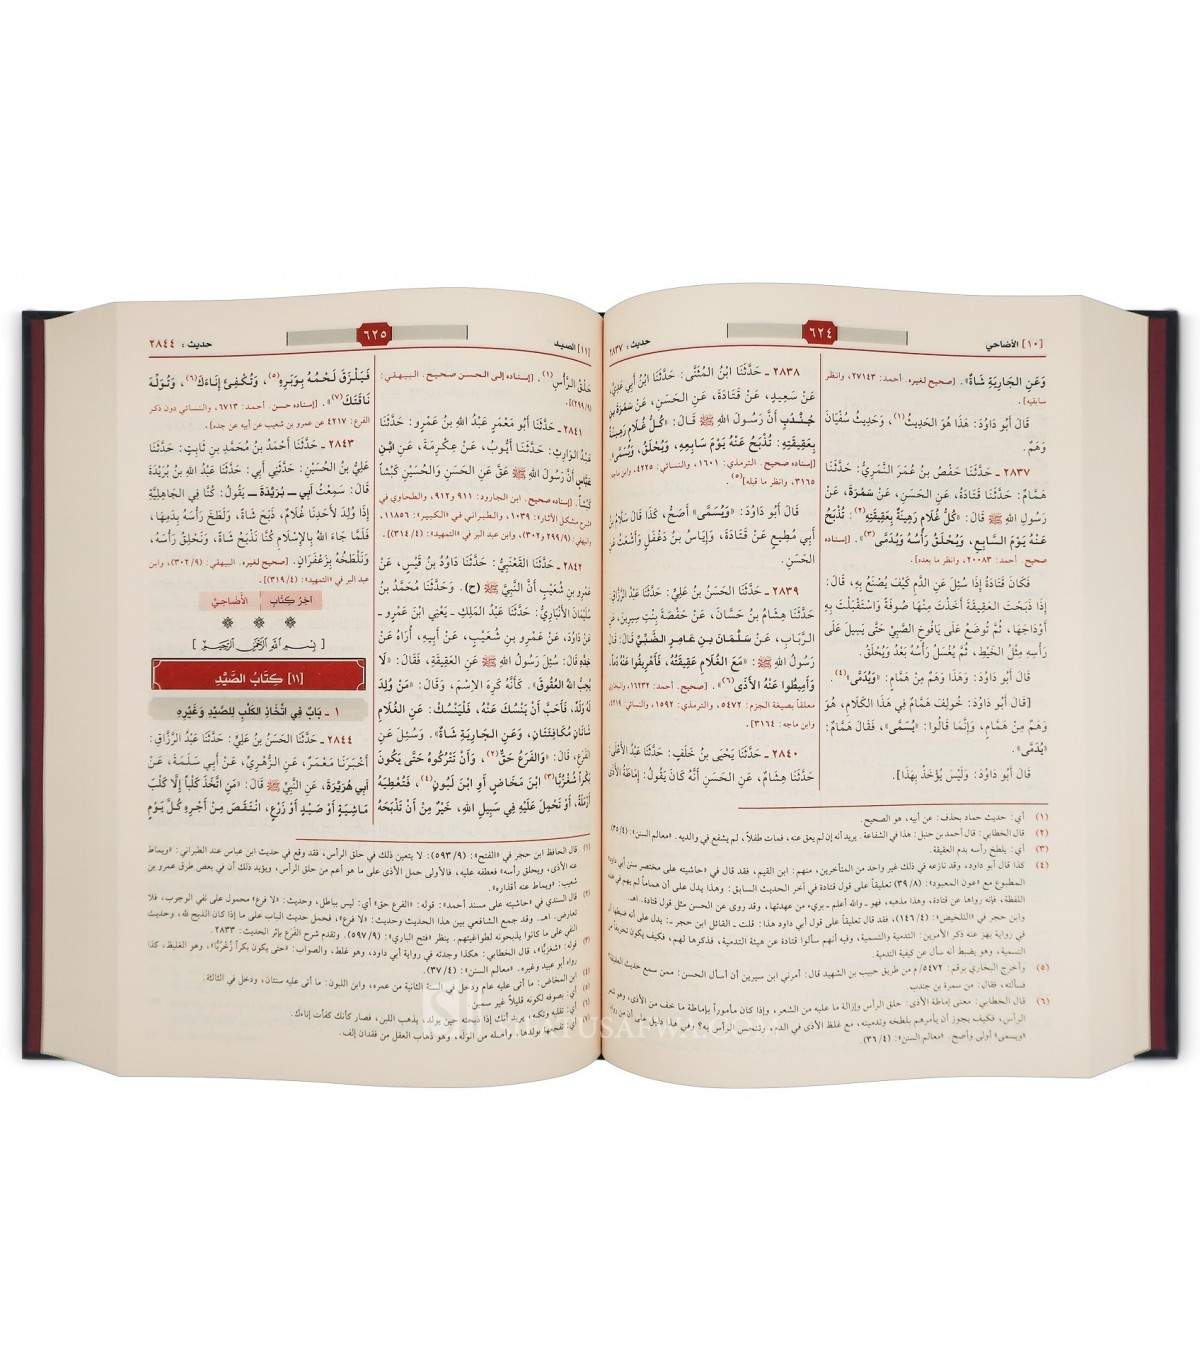 [١٠] الأضاحي
٦٢٤
حديث: ٢٨٣٧
وَعَنِ الجَارِيَةِ شَاةٌ». [صحيح لغيره. أحمد: ٢٧١٤٣، وانظر
سابقيه].
قَالَ أَبُو دَاوُدَ: هَذَا هُوَ الحَدِيثُ(١)، وَحَدِيثُ سُفْيَانَ
وَهَمٌ.
٢٨٣٧ ـ حَدَّثَنَا حَفْصُ بنُ عُمَرَ النَّمَرِيُّ: حَدَّثَنَا
هَمَّامٌ: حَدَّثَنَا قَتَادَةُ، عَنِ الحَسَنِ، عَنْ سَمُرَةَ، عَنْ
رَسُولِ اللهِ ﷺ قَالَ: «كُلُّ غُلَامٍ رَهِينَةٌ بِعَقِيقَتِهِ(٢): تُذْبَحُ
عَنْهُ يَوْمَ السَّابِعِ، وَيُحْلَقُ رَأْسُهُ وَيُدَمَّى(٣)». [إسناده
صحيح. أحمد: ٢٠٠٨٣، وانظر ما بعده].
فَكَانَ قَتَادَةُ إِذَا سُئِلَ عَنِ الدَّمِ كَيْفَ يُصْنَعُ بِهِ، قَالَ:
إِذَا ذَبَحْتَ العَقِيقَةَ أَخَذْتَ مِنْهَا صُوفَةً وَاسْتَقْبَلْتَ بِهِ
أَوْدَاجَهَا، ثُمَّ تُوضَعُ عَلَى يَافُوخِ الصَّبِيِّ حَتَّى يَسِيلَ عَلَى
رَأْسِهِ مِثْلُ الخَيْطِ، ثُمَّ يُغْسَلُ رَأْسُهُ بَعْدُ وَيُحْلَقُ.
قَالَ أَبُو دَاوُدَ: وَهَذَا وَهَمٌ مِنْ هَمَّامٍ: «وَيُدَمَّى»(٤).
قَالَ أَبُو دَاوُدَ: خُولِفَ هَمَّامٌ فِي هَذَا الكَلَامِ، هُوَ
وَهَمٌ مِنْ هَمَّامٍ، وَإِنَّمَا قَالُوا: «يُسَمَّى»، فَقَالَ هَمَّامٌ:
«يُدَمَّى».
قَالَ أَبُو دَاوُدَ: وَلَيْسَ يُؤْخَذُ بِهَذَا].
٢٨٣٨ ـ حَدَّثَنَا ابْنُ المُثَنَّى: حَدَّثَنَا ابْنُ أَبِي عَدِيٍّ،
عَنْ سَعِيدٍ، عَنْ قَتَادَةَ، عَنِ الحَسَنِ، عَنْ سَمُرَةَ بنِ
جُنْدُبٍ أَنَّ رَسُولَ اللهِ ﷺ قَالَ: «كُلُّ غُلَامٍ رَهِينَةٌ
بِعَقِيقَتِهِ: تُذْبَحُ عَنْهُ يَوْمَ سَابِعِهِ، وَيُحْلَقُ، وَيُسَمَّى».
[إسناده صحيح. الترمذي: ١٦٠١، والنسائي: ٤٢٢٥، وابن ماجه:
٣١٦٥، وانظر ما قبله](٥).
قَالَ أَبُو دَاوُدَ: «وَيُسَمَّى» أَصَحُّ، كَذَا قَالَ سَلَّامُ بنُ
أَبِي مُطِيعٍ عَنْ قَتَادَةَ، وَإِيَاسُ بنُ دَغْفَلٍ وَأَشْعَثُ عَنِ
الحَسَنِ.
٢٨٣٩ ـ حَدَّثَنَا الحَسَنُ بنُ عَلِيٍّ: حَدَّثَنَا عَبْدُ الرَّزَّاقِ:
حَدَّثَنَا هِشَامُ بنُ حَسَّانَ، عَنْ حَفْصَةَ بِنْتِ سِيرِينَ، عَنِ
الرَّبَابِ، عَنْ سَلْمَانَ بنِ عَامِرٍ الضَّبِّيِّ قَالَ: قَالَ
رَسُولُ اللهِ ﷺ: «مَعَ الغُلَامِ عَقِيقَتُهُ، فَأَهْرِيقُوا عَنْهُ دَماً،
وَأَمِيطُوا عَنْهُ الأَذَى(٦)». [صحيح. أحمد: ١٦٢٣٢، والبخاري
معلقاً بصيغة الجزم: ٥٤٧٢، والترمذي: ١٥٩٢، والنسائي: ٤٢١٩،
وابن ماجه: ٣١٦٤].
٢٨٤٠ ـ حَدَّثَنَا يَحْيَى بنُ خَلَفٍ: حَدَّثَنَا عَبْدُ الأَعْلَى:
حَدَّثَنَا هِشَامٌ، عَنِ الحَسَنِ أَنَّهُ كَانَ يَقُولُ: إِمَاطَةُ الأَذَى
(١) أي: حديث حماد بحذف: عن أبيه، هو الصحيح.
(٢) قال الخطابي: قال أحمد بن حنبل: هذا في الشفاعة. يريد أنه إن لم يعق عنه، فمات طفلاً، لم يشفع في والديه. «معالم السنن»: (٤/ ٣٥).
(٣) أي: يلطخ رأسه بدم العقيقة.
(٤) كذا قال أبو داود، وقد نازعه في ذلك غير واحد من المتأخرين، منهم: ابن القيم، فقد قال في «حاشيته على مختصر سنن أبي داود»
المطبوع مع «عون المعبود»: (٨/ ٣٩) تعليقاً على قول قتادة في آخر الحديث السابق: وهذا يدل على أن هماماً لم يهم في هذه
اللفظة، فإنه رواها عن قتادة، وهذا مذهبه، فهو ـ والله أعلم ـ بريء من عهدتها، وقد روي عن الحسن مثل قول قتادة. اهـ.
وابن حجر في «التلخيص»: (٤/ ١٤٦)، فقد قال تعليقاً على قول أبي داود هذا: قلت ـ القائل ابن حجر ـ: يدل على أنه ضبطها أن
في رواية بهز عنه ذكر الأمرين: التدمية والتسمية، وفيه أنهم سألوا قتادة عن هيئة التدمية، فذكرها لهم، فكيف يكون تحريفاً من
التسمية، وهو يضبط أنه سأل عن كيفية التدمية.
(٥) وأخرج البخاري برقم: ٥٤٧٢/م من طريق حبيب بن الشهيد قال: أمرني ابن سيرين أن أسأل الحسن: ممن سمع حديث العقيقة؟
فسألته، فقال: من سمرة بن جندب.
(٦) قال الخطابي: معنى إماطة الأذى: حلق الرأس وإزالة ما عليه من الشعر، وإذا كان مأموراً بإماطة ما خف من الأذى، وهو شعر
الرأس، فكيف يجوز أن يأمرهم بلطخه وتدميته، مع غلظ الأذى في الدم، وتنجس الرأس به؟ وفي هذا دليل على أن من رواه
«ويسمى» أولى وأصح. «معالم السنن»: (٤/ ٣٦).
[١١] الصيد
٦٢٥
حديث: ٢٨٤٤
حَلْقُ الرَّأْسِ(١). [إسناده إلى الحسن صحيح. البيهقي:
(٩/ ٢٩٩)].
٢٨٤١ ـ حَدَّثَنَا أَبُو مَعْمَرٍ عَبْدُ اللهِ بنُ عَمْرٍو: حَدَّثَنَا
عَبْدُ الوَارِثِ: حَدَّثَنَا أَيُّوبُ، عَنْ عِكْرِمَةَ، عَنِ ابْنِ
عَبَّاسٍ أَنَّ رَسُولَ اللهِ ﷺ عَقَّ عَنِ الحَسَنِ وَالحُسَيْنِ كَبْشاً
كَبْشاً. [إسناده صحيح. ابن الجارود: ٩١١ و٩١٢، والطحاوي في
«شرح مشكل الآثار»: ١٠٣٩، والطبراني في «الكبير»: ١١٨٥٦،
والبيهقي: (٩/ ٢٩٩ و٣٠٢)، وابن عبد البر في «التمهيد»: (٤/ ٣١٤)].
٢٨٤٢ ـ حَدَّثَنَا القَعْنَبِيُّ: حَدَّثَنَا دَاوُدُ بنُ قَيْسٍ، عَنْ
عَمْرِو بنِ شُعَيْبٍ أَنَّ النَّبِيَّ ﷺ (ح). وَحَدَّثَنَا مُحَمَّدُ بنُ
سُلَيْمَانَ الأَنْبَارِيُّ: حَدَّثَنَا عَبْدُ المَلِكِ ـ يَعْنِي ابْنَ عَمْرٍو ـ
عَنْ دَاوُدَ، عَنْ عَمْرِو بنِ شُعَيْبٍ، عَنْ أَبِيهِ، أُرَاهُ عَنْ
جَدِّهِ قَالَ: سُئِلَ رَسُولُ اللهِ ﷺ عَنِ العَقِيقَةِ، فَقَالَ: «لَا
يُحِبُّ اللهُ العُقُوقَ». كَأَنَّهُ كَرِهَ الِاسْمَ، وَقَالَ: «مَنْ وُلِدَ
لَهُ وَلَدٌ، فَأَحَبَّ أَنْ يَنْسُكَ عَنْهُ، فَلْيَنْسُكْ: عَنِ الغُلَامِ
شَاتَانِ مُكَافِئَتَانِ، وَعَنِ الجَارِيَةِ شَاةٌ». وَسُئِلَ عَنِ
الفَرَعِ، قَالَ: «وَالفَرَعُ حَقٌّ(٢)، وَأَنْ تَتْرُكُوهُ حَتَّى يَكُونَ
بَكْراً شُغْزُبًّا(٣) ابْنَ مَخَاضٍ أَوِ ابْنَ لَبُونٍ(٤)، فَتُعْطِيَهُ
أَرْمَلَةً، أَوْ تَحْمِلَ عَلَيْهِ فِي سَبِيلِ اللهِ، خَيْرٌ مِنْ أَنْ تَذْبَحَهُ
فَيَلْزَقَ لَحْمُهُ بِوَبَرِهِ(٥)، وَتُكْفِئَ إِنَاءَكَ(٦)، وَتُوَلِّهَ
نَاقَتَكَ(٧)». [إسناده حسن. أحمد: ٦٧١٣، والنسائي دون ذكر
الفرع: ٤٢١٧ عن عمرو بن شعيب عن أبيه عن جده].
٢٨٤٣ ـ حَدَّثَنَا أَحْمَدُ بنُ مُحَمَّدِ بنِ ثَابِتٍ: حَدَّثَنَا
عَلِيُّ بنُ الحُسَيْنِ: حَدَّثَنِي أَبِي: حَدَّثَنَا عَبْدُ اللهِ بنُ بُرَيْدَةَ
قَالَ: سَمِعْتُ أَبِي ـ بُرَيْدَةَ ـ يَقُولُ: كُنَّا فِي الجَاهِلِيَّةِ
إِذَا وُلِدَ لِأَحَدِنَا غُلَامٌ، ذَبَحَ شَاةً، وَلَطَخَ رَأْسَهُ بِدَمِهَا،
فَلَمَّا جَاءَ اللهُ بِالإِسْلَامِ كُنَّا نَذْبَحُ شَاةً، وَنَحْلِقُ رَأْسَهُ،
وَنَلْطَخُهُ بِزَعْفَرَانٍ. [صحيح لغيره. البيهقي: (٩/ ٣٠٢)، وابن
عبد البر في «التمهيد»: (٤/ ٣١٩)].
آخِرُ كِتَابِ الأَضَاحِيِّ
[بِسْمِ اللَّهِ الرَّحْمَنِ الرَّحِيمِ]
[١١] كِتَابُ الصَّيْدِ
١ ـ بَابٌ فِي اتِّخَاذِ الكَلْبِ لِلصَّيْدِ وَغَيْرِهِ
٢٨٤٤ ـ حَدَّثَنَا الحَسَنُ بنُ عَلِيٍّ: حَدَّثَنَا عَبْدُ الرَّزَّاقِ:
أَخْبَرَنَا مَعْمَرٌ، عَنِ الزُّهْرِيِّ، عَنْ أَبِي سَلَمَةَ، عَنْ
أَبِي هُرَيْرَةَ، عَنِ النَّبِيِّ ﷺ قَالَ: «مَنِ اتَّخَذَ كَلْباً إِلَّا كَلْبَ
مَاشِيَةٍ أَوْ صَيْدٍ أَوْ زَرْعٍ، انْتَقَصَ مِنْ أَجْرِهِ كُلَّ يَوْمٍ
(١) قال الحافظ ابن حجر في «الفتح»: (٩/ ٥٩٣): لا يتعين ذلك في حلق الرأس، فقد وقع في حديث ابن عباس عند الطبراني: «ويماط
عنه الأذى، ويحلق رأسه» فعطفه عليه، فالأولى حمل الأذى على ما هو أعم من حلق الرأس، ويؤيد ذلك أن في بعض طرق عمرو بن
شعيب: «ويماط عنه أقذاره».
(٢) قال السندي في «حاشيته على مسند أحمد»: قوله: «الفرع حق» أي: ليس بباطل، وحديث: «لا فرع» محمول على نفي الوجوب، فلا
تعارض. اهـ. وقد جمع الشافعي بين هذا الحديث وحديث: «لا فرع»، فحمل حديث الباب على ما إذا كان الذبح لله، وحديث
النفي على ما كانوا يذبحونه لطواغيتهم. ينظر «فتح الباري»: (٩/ ٥٩٧). وتقدم شرح الفَرَع بإثر الحديث: ٢٨٣٣.
(٣) قوله: «شغزبًّا»، قال الخطابي: هكذا وجدته في رواية أبي داود، وهو غلط، والصواب: «حتى يكون بكراً زُخْزُبًّا»، وهو الغليظ، كذا
رواه أبو عبيد وغيره. «معالم السنن»: (٤/ ٣٧).
(٤) ابن المخاض: ما أتى عليه عام ودخل في السنة الثانية من عمره، وابن اللبون: ما أتى عليه سنتان، ودخل في الثالثة.
(٥) أي: بصوفه لكونه قليلاً غير سمين.
(٦) أي: تقلبه وتكبه، يريد أنك إذا ذبحته حين يولد، يذهب اللبن، فصار كأنك كفأت إناءك.
(٧) أي: تفجعها بولدها، وأصله من الوَلَه، وهو ذهاب العقل من فقدان إلف.